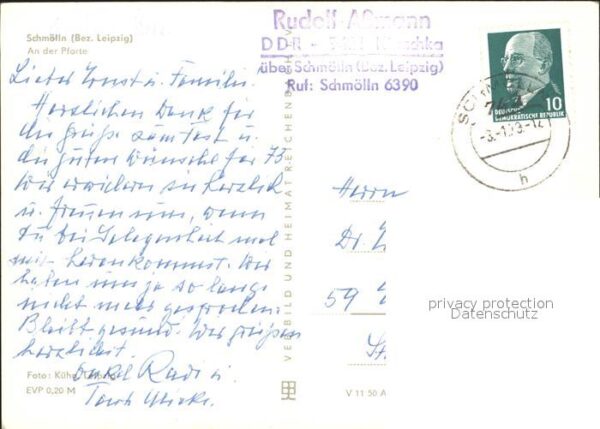 Schmölln (Bez. Leipzig)
An der Pforte
Rudolf Aßmann
DDR -
über Schmölln (Bez. Leipzig)
Ruf: Schmölln 6390
10
DEUTSCHE
DEMOKRATISCHE REPUBLIK
h
Lieber Ernst u. Familie.
Herzlichen Dank für
die Grüße zum Fest u.
die guten Wünsche für 75
Wir erwidern sie herzlich
u. freuen uns, wenn
Du bei Gelegenheit mal
mit herankommst. Wir
haben uns ja so lange
nicht mehr gesprochen.
Bleibt gesund. Wir grüßen
herzlichst.
Onkel Rudi u.
Herrn
Dr.
59
privacy protection
Datenschutz
VEB BILD UND HEIMAT REICHENBACH I. V.
Foto: Kühn,
EVP 0,20 M
V 11 50 A